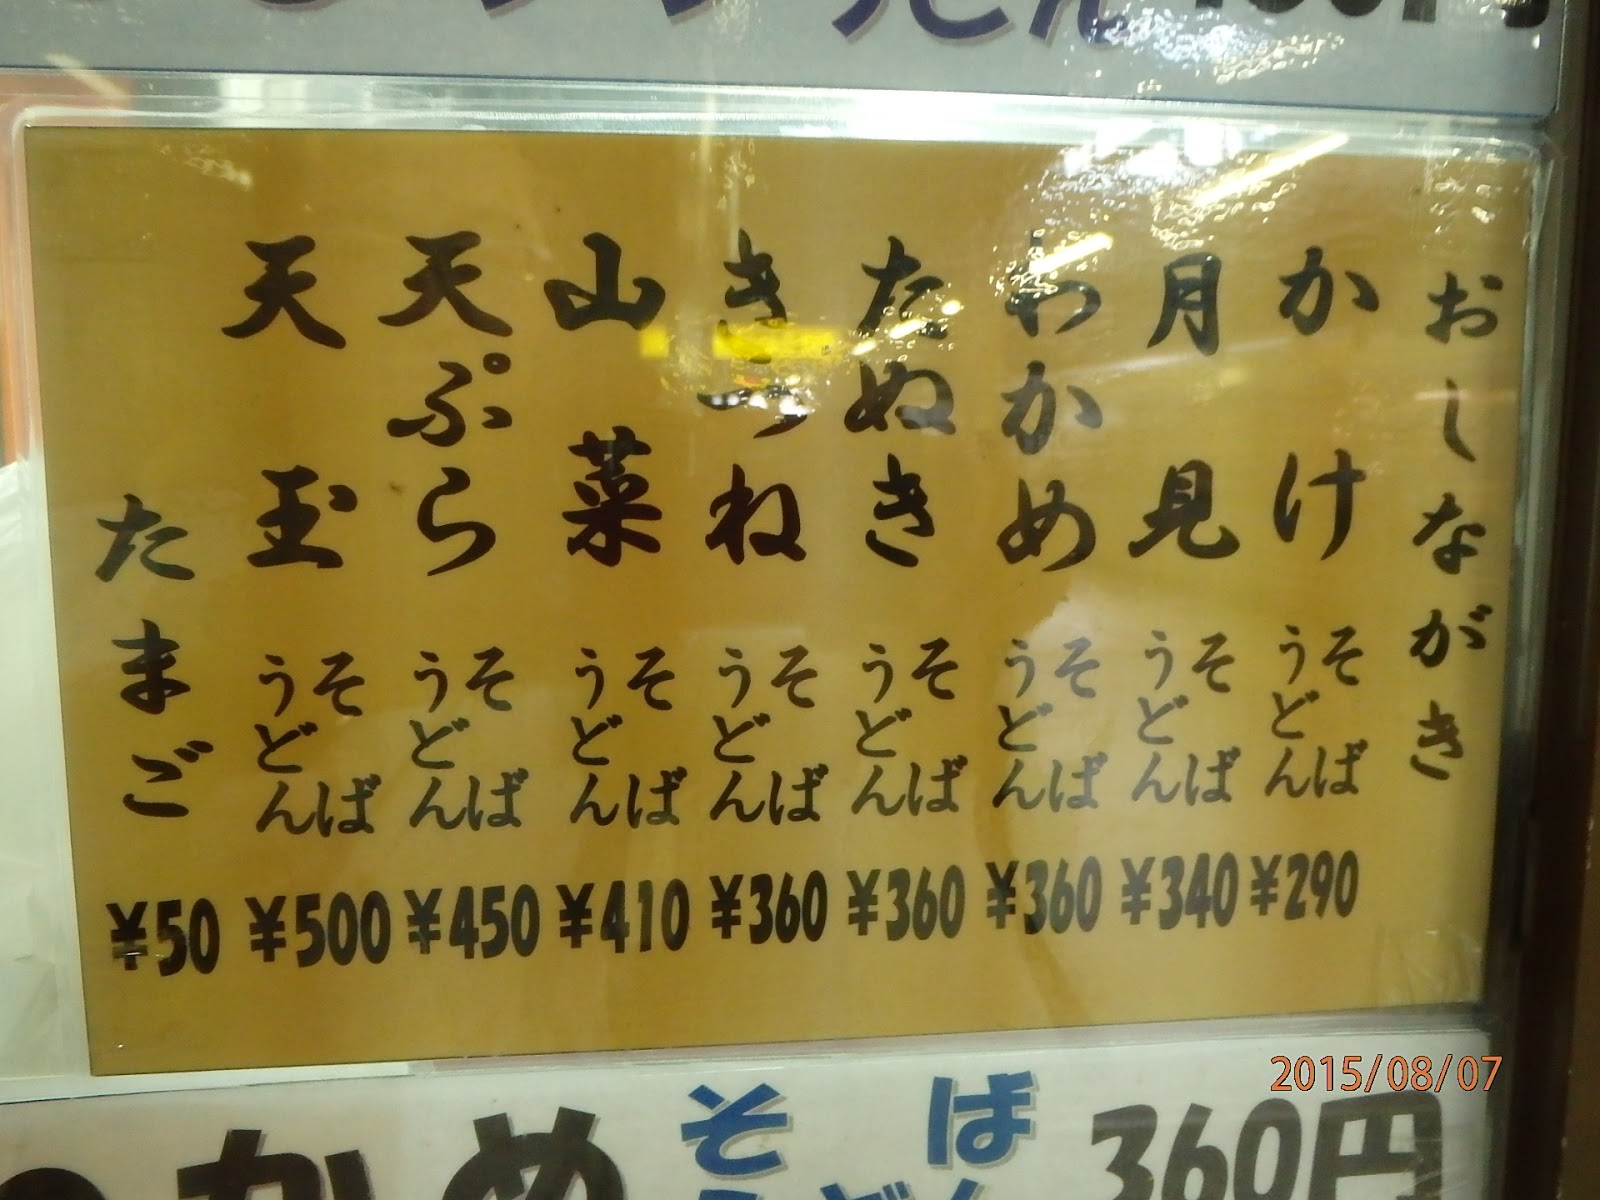 うどん
おしながき
かけ そば うどん ¥290
月見 そば うどん ¥340
わかめ そば うどん ¥360
たぬき そば うどん ¥360
きつね そば うどん ¥360
山菜 そば うどん ¥410
天ぷら そば うどん ¥450
天玉 そば うどん ¥500
たまご ¥50
かめ そば うどん 360円
2015/08/07